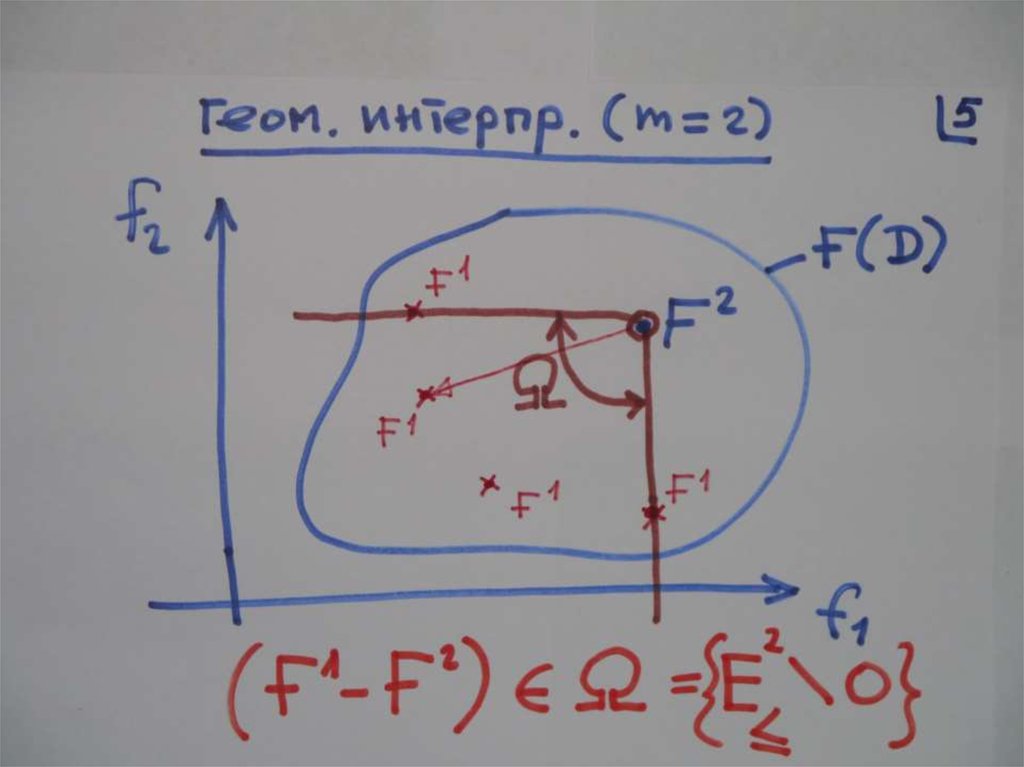 Геом. интерпр. (m = 2)
5
f₂
F(D)
F¹
F²
Ω
F¹
F¹
F¹
f₁
(F¹ - F²) ∈ Ω = {E²≤ \ 0}